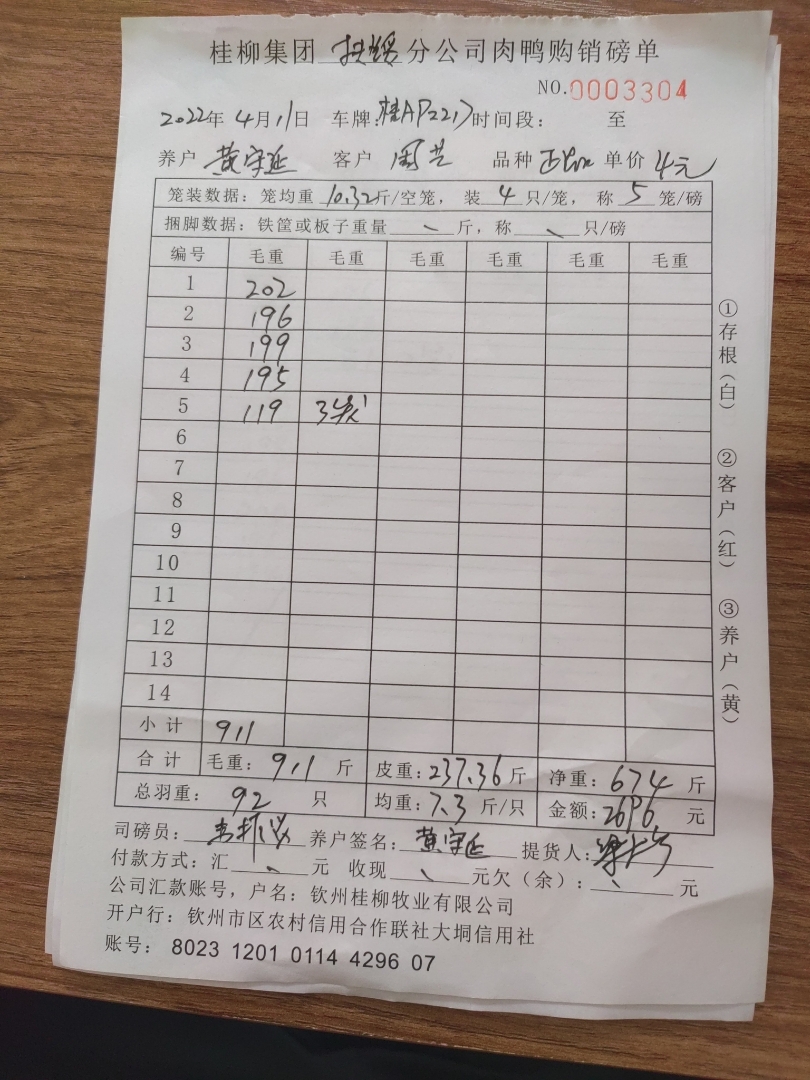 桂柳集团 扶绥 分公司肉鸭购销磅单
NO.0003304
2022年 4月11日 车牌: 时间段: 至
养户 黄守延 客户 周艺 品种 单价 4元
笼装数据: 笼均重 10.32斤/空笼, 装 4 只/笼, 称 5 笼/磅
捆脚数据: 铁筐或板子重量 斤, 称 只/磅
编号 毛重 毛重 毛重 毛重 毛重 毛重
1 202
2 196
3 199
4 195
5 119 3
6
7
8
9
10
11
12
13
14
小计 911
合计 毛重: 911 斤 皮重: 237.36斤 净重: 674 斤
总羽重: 92 只 均重: 7.3 斤/只 金额: 2696 元
司磅员: 养户签名: 黄守延 提货人:
付款方式: 汇 元 收现 元欠(余): 元
公司汇款账号, 户名: 钦州桂柳牧业有限公司
开户行: 钦州市区农村信用合作联社大垌信用社
账号: 8023 1201 0114 4296 07
①存根(白)
②客户(红)
③养户(黄)